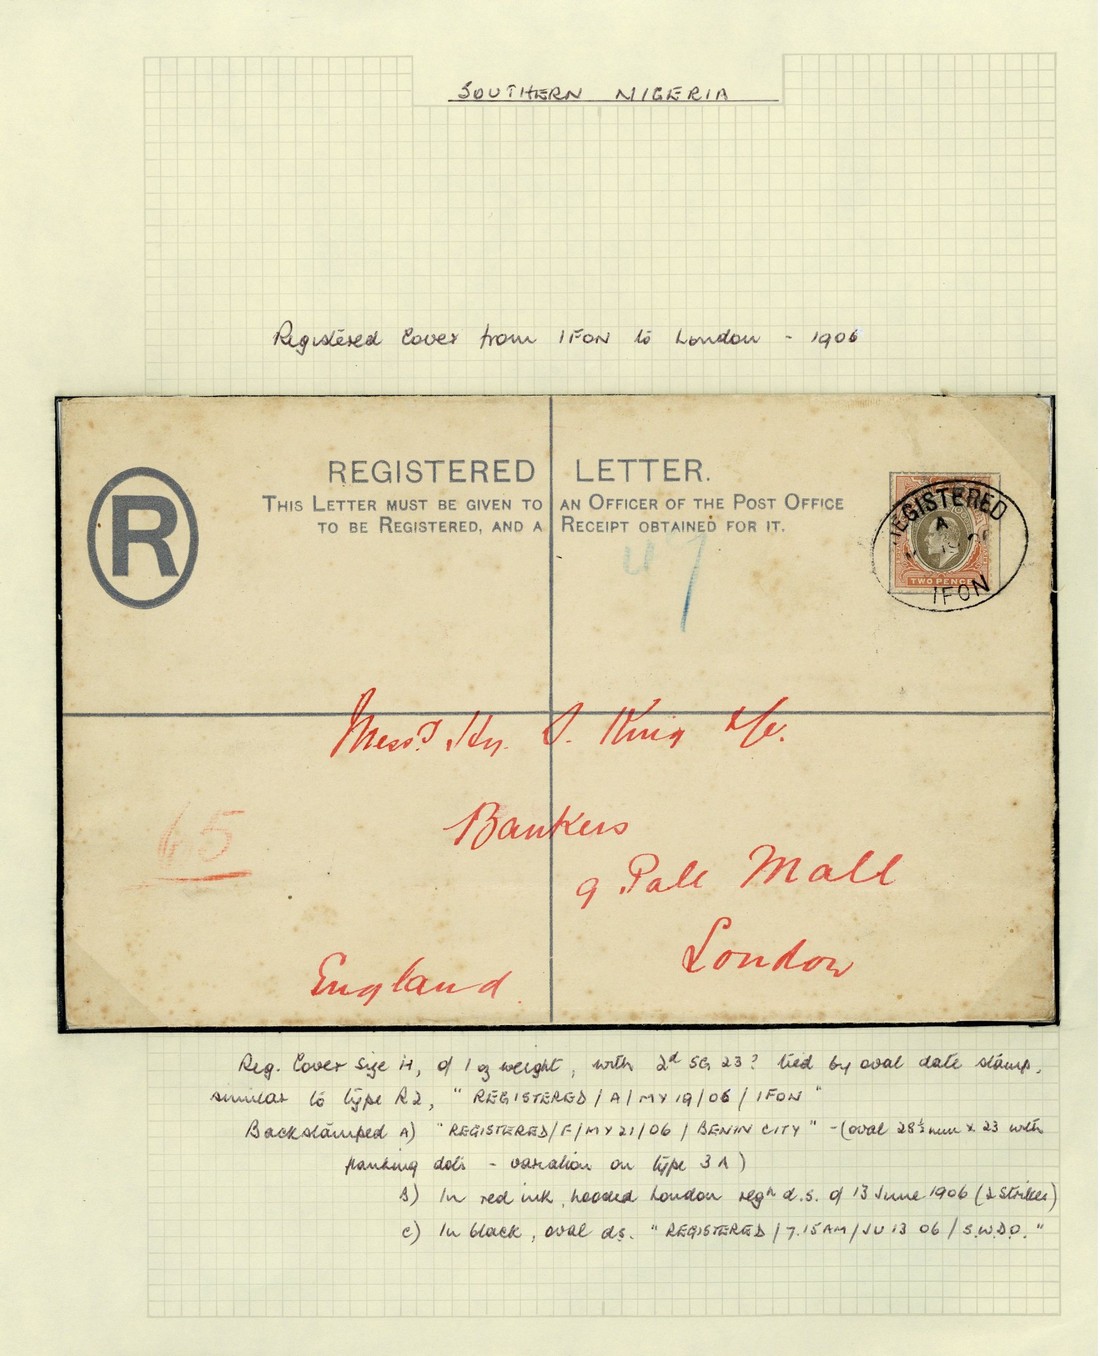 SOUTHERN NIGERIA
Registered Cover from IFON to London - 1906
REGISTERED LETTER.
THIS LETTER MUST BE GIVEN TO AN OFFICER OF THE POST OFFICE
TO BE REGISTERED, AND A RECEIPT OBTAINED FOR IT.
R
REGISTERED
A
19 06
TWO PENCE
IFON
47
Mess.rs Hy. S. King & Co.
Bankers
65
9 Pall Mall
London
England.
Reg. Cover Size H, of 1 oz weight, with 2d SG 23? tied by oval date stamp,
similar to type R2, "REGISTERED/A/MY 19/06/IFON"
Backstamped A) "REGISTERED/F/MY 21/06/BENIN CITY" - (oval 28½mm x 23 with
flanking dots - variation on type 3A)
B) In red ink, hooded London regn d.s. of 13 June 1906 (2 Strikes)
C) In black, oval d.s. "REGISTERED/7.15AM/JU 13 06/S.W.D.O."